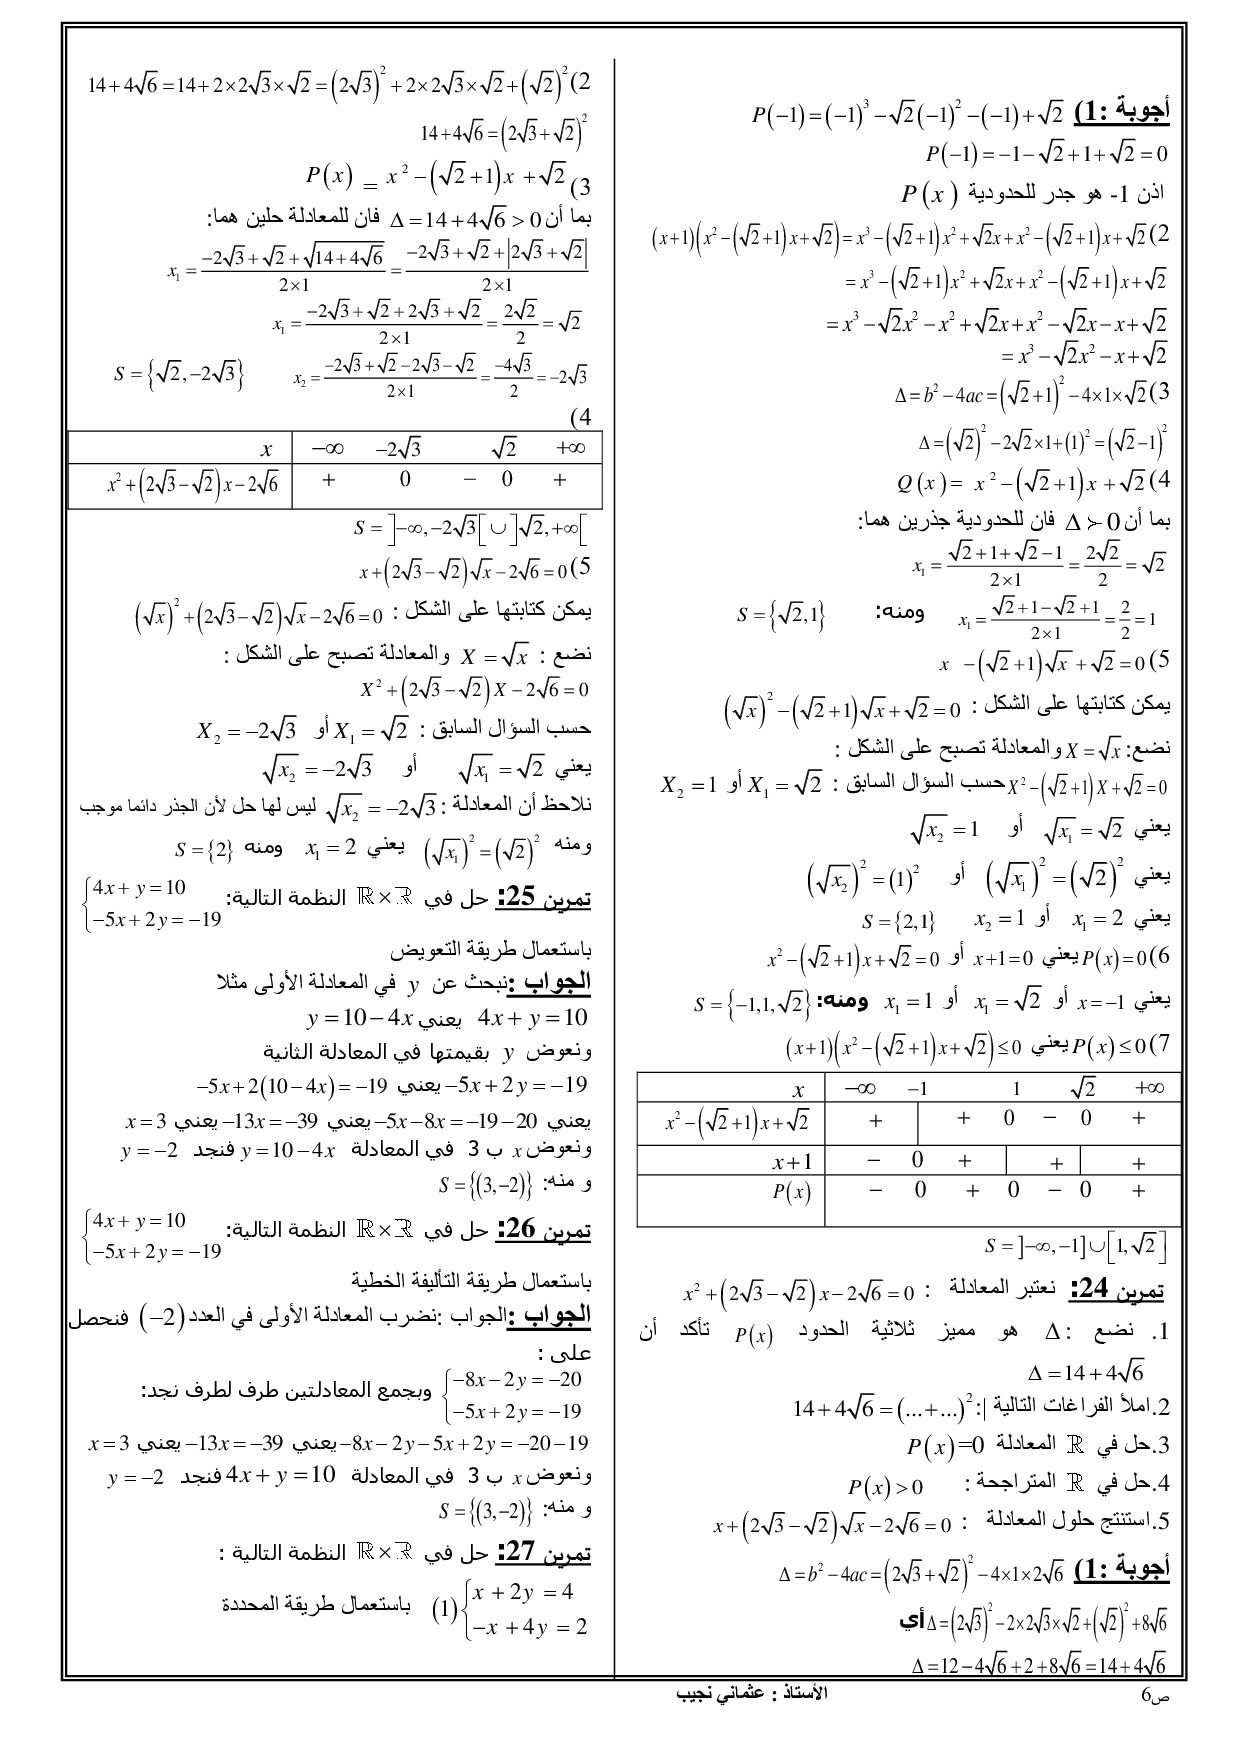 أجوبة :1) P(−1) = (−1)³ − √2(−1)² − (−1) + √2
P(−1) = −1 − √2 + 1 + √2 = 0
اذن 1- هو جدر للحدودية P(x)
2) (x+1)(x² − (√2+1)x + √2) = x³ − (√2+1)x² + √2x + x² − (√2+1)x + √2
= x³ − (√2+1)x² + √2x + x² − (√2+1)x + √2
= x³ − √2x² − x² + √2x + x² − √2x − x + √2
= x³ − √2x² − x + √2
3) Δ = b² − 4ac = (√2+1)² − 4×1×√2
Δ = (√2)² − 2√2×1 + (1)² = (√2−1)²
4) Q(x) = x² − (√2+1)x + √2
بما أن Δ ≻ 0 فان للحدودية جذرين هما:
x₁ = (√2+1+√2−1)/(2×1) = 2√2/2 = √2
x₁ = (√2+1−√2+1)/(2×1) = 2/2 = 1 ومنه: S = {√2,1}
5) x − (√2+1)√x + √2 = 0
يمكن كتابتها على الشكل : (√x)² − (√2+1)√x + √2 = 0
نضع: X = √x والمعادلة تصبح على الشكل :
X² − (√2+1)X + √2 = 0 حسب السؤال السابق : X₁ = √2 أو X₂ = 1
يعني √x₁ = √2 أو √x₂ = 1
يعني (√x₁)² = (√2)² أو (√x₂)² = (1)²
يعني x₁ = 2 أو x₂ = 1 S = {2,1}
6) P(x) = 0 يعني x+1 = 0 أو x² − (√2+1)x + √2 = 0
يعني x = −1 أو x₁ = √2 أو x₁ = 1 ومنه: S = {−1,1,√2}
7) P(x) ≤ 0 يعني (x+1)(x² − (√2+1)x + √2) ≤ 0
x −∞ −1 1 √2 +∞
x² − (√2+1)x + √2 + + 0 − 0 +
x+1 − 0 + + +
P(x) − 0 + 0 − 0 +
S = ]−∞,−1] ∪ [1,√2]
تمرين 24: نعتبر المعادلة : x² + (2√3−√2)x − 2√6 = 0
1. نضع : Δ هو مميز ثلاثية الحدود P(x) تأكد أن
Δ = 14 + 4√6
2.املأ الفراغات التالية |: 14 + 4√6 = (...+...)²
3.حل في ℝ المعادلة P(x)=0
4.حل في ℝ المتراجحة : P(x) > 0
5.استنتج حلول المعادلة : x + (2√3−√2)√x − 2√6 = 0
أجوبة :1) Δ = b² − 4ac = (2√3+√2)² − 4×1×2√6
أي Δ = (2√3)² − 2×2√3×√2 + (√2)² + 8√6
Δ = 12 − 4√6 + 2 + 8√6 = 14 + 4√6
2) 14 + 4√6 = 14 + 2×2√3×√2 = (2√3)² + 2×2√3×√2 + (√2)²
14 + 4√6 = (2√3+√2)²
3) P(x) = x² − (√2+1)x + √2
بما أن Δ = 14 + 4√6 > 0 فان للمعادلة حلين هما:
x₁ = (−2√3+√2+√(14+4√6))/(2×1) = (−2√3+√2+|2√3+√2|)/(2×1)
x₁ = (−2√3+√2+2√3+√2)/(2×1) = 2√2/2 = √2
x₂ = (−2√3+√2−2√3−√2)/(2×1) = −4√3/2 = −2√3 S = {√2,−2√3}
4)
x −∞ −2√3 √2 +∞
x² + (2√3−√2)x − 2√6 + 0 − 0 +
S = ]−∞,−2√3[ ∪ ]√2,+∞[
5) x + (2√3−√2)√x − 2√6 = 0
يمكن كتابتها على الشكل : (√x)² + (2√3−√2)√x − 2√6 = 0
نضع : X = √x والمعادلة تصبح على الشكل :
X² + (2√3−√2)X − 2√6 = 0
حسب السؤال السابق : X₁ = √2 أو X₂ = −2√3
يعني √x₁ = √2 أو √x₂ = −2√3
نلاحظ أن المعادلة : √x₂ = −2√3 ليس لها حل لأن الجذر دائما موجب
ومنه (√x₁)² = (√2)² يعني x₁ = 2 ومنه S = {2}
تمرين 25: حل في ℝ×ℝ النظمة التالية: {4x + y = 10
−5x + 2y = −19
باستعمال طريقة التعويض
الجواب :نبحث عن y في المعادلة الأولى مثلا
4x + y = 10 يعني y = 10 − 4x
ونعوض y بقيمتها في المعادلة الثانية
−5x + 2y = −19 يعني −5x + 2(10−4x) = −19
يعني −5x − 8x = −19 − 20 يعني −13x = −39 يعني x = 3
ونعوض x ب 3 في المعادلة y = 10 − 4x فنجد y = −2
و منه: S = {(3,−2)}
تمرين 26: حل في ℝ×ℝ النظمة التالية: {4x + y = 10
−5x + 2y = −19
باستعمال طريقة التأليفة الخطية
الجواب :الجواب :نضرب المعادلة الأولى في العدد (−2) فنحصل
على :
{−8x − 2y = −20
−5x + 2y = −19 وبجمع المعادلتين طرف لطرف نجد:
−8x − 2y − 5x + 2y = −20 − 19 يعني −13x = −39 يعني x = 3
ونعوض x ب 3 في المعادلة 4x + y = 10 فنجد y = −2
و منه: S = {(3,−2)}
تمرين 27: حل في ℝ×ℝ النظمة التالية :
(1) {x + 2y = 4
−x + 4y = 2 باستعمال طريقة المحددة
ص6 الأستاذ : عثماني نجيب